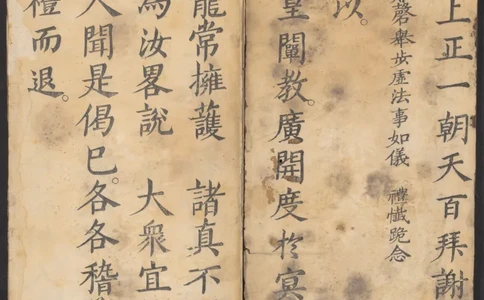 上正一朝天百拜謝
磬舉步虛法事如儀　禮懺跪念
以。
皇闡教廣開度扵冥
龍常擁護　諸真不
為汝畧說　大眾宜
人聞是偈已。各各稽
禮而退。